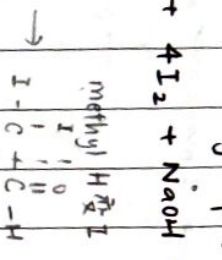 + 4I₂ + NaOH
methyl H I
I O
→ I - C + C - H